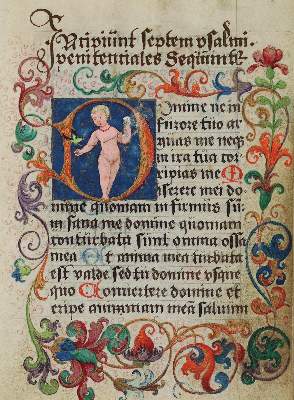 Incipiūnt septem psalmi.
penitentiales Sequintr
Domine ne in
furore tuo ar
guas me neqz
in ira tua cor
ripias me M
iserere mei do
mine quoniam infirmus sū
in sana me domine quoniam
conturbata sunt omnia ossa
mea Et anima mea turbata
est valde sed tu domine usqne
quo Conuertere domine et
eripe animam meā saluum